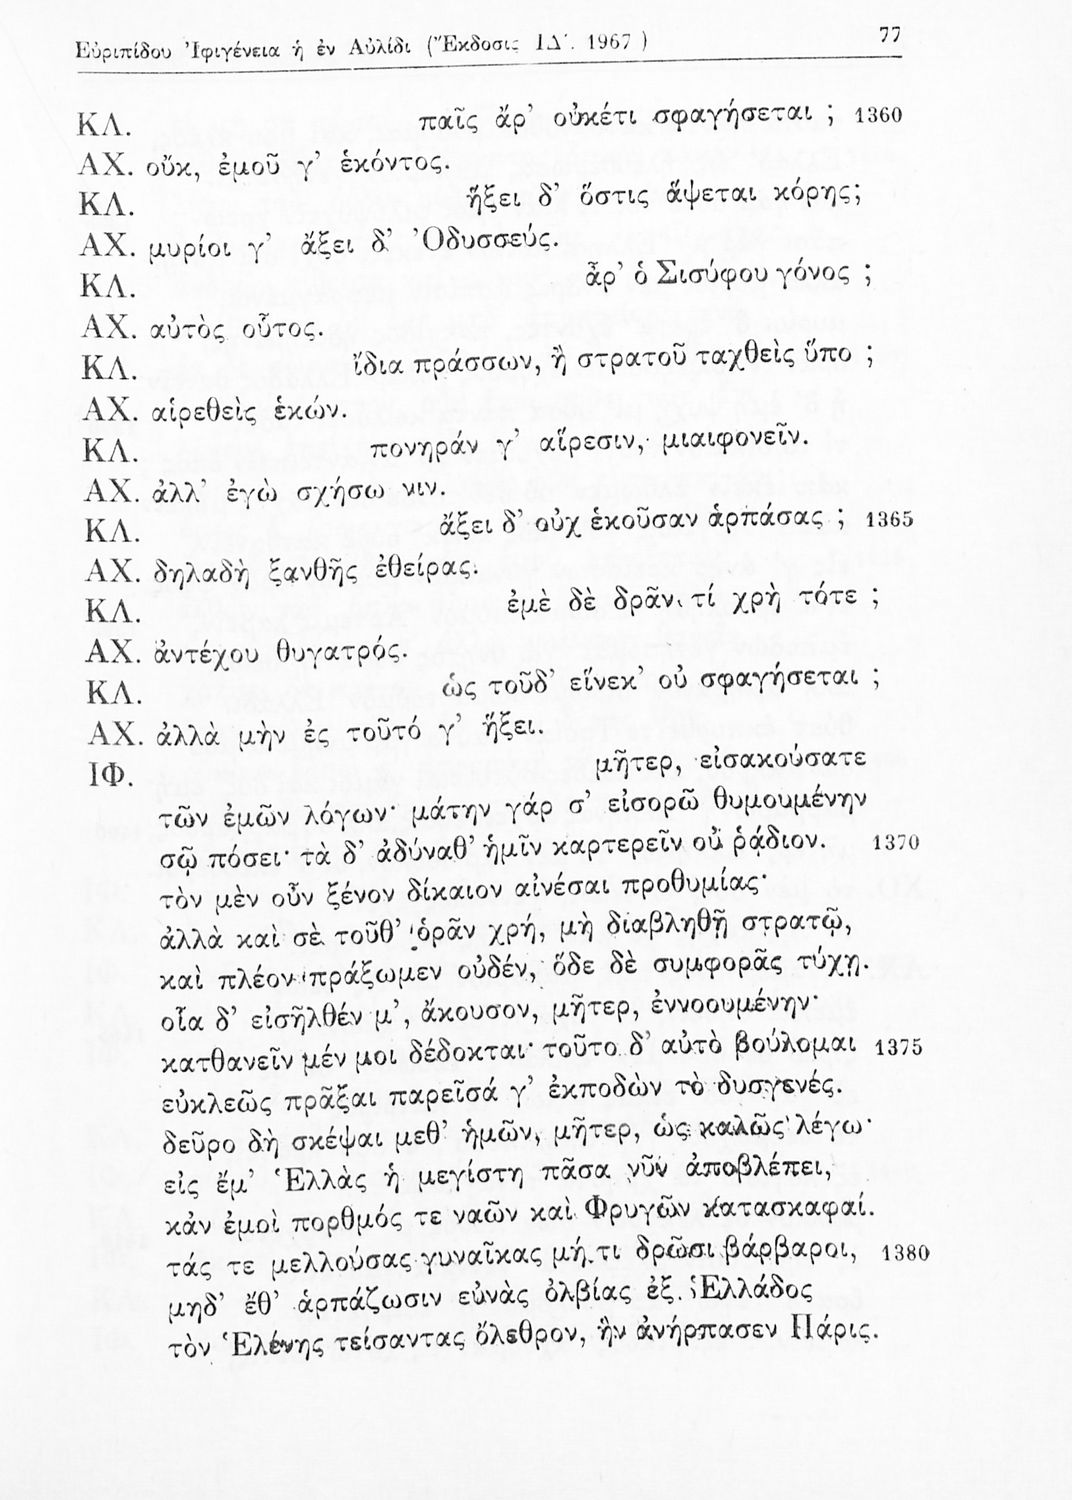 Εὐριπίδου Ἰφιγένεια ἡ ἐν Αὐλίδι (Ἔκδοσις ΙΔʹ. 1967) 77
ΚΛ. παῖς ἄρ’ οὐκέτι σφαγήσεται ; 1360
ΑΧ. οὔκ, ἐμοῦ γ’ ἑκόντος.
ΚΛ. ἥξει δ’ ὅστις ἅψεται κόρης;
ΑΧ. μυρίοι γ’ ἄξει δ’ Ὀδυσσεύς.
ΚΛ. ἆρ’ ὁ Σισύφου γόνος ;
ΑΧ. αὐτὸς οὗτος.
ΚΛ. ἴδια πράσσων, ἢ στρατοῦ ταχθεὶς ὕπο ;
ΑΧ. αἱρεθεὶς ἑκών.
ΚΛ. πονηράν γ’ αἵρεσιν, μιαιφονεῖν.
ΑΧ. ἀλλ’ ἐγὼ σχήσω νιν.
ΚΛ. ἄξει δ’ οὐχ ἑκοῦσαν ἁρπάσας ; 1365
ΑΧ. δηλαδὴ ξανθῆς ἐθείρας.
ΚΛ. ἐμὲ δὲ δρᾶν τί χρὴ τότε ;
ΑΧ. ἀντέχου θυγατρός.
ΚΛ. ὡς τοῦδ’ εἵνεκ’ οὐ σφαγήσεται ;
ΑΧ. ἀλλὰ μὴν ἐς τοῦτό γ’ ἥξει.
ΙΦ. μῆτερ, εἰσακούσατε
τῶν ἐμῶν λόγων· μάτην γάρ σ’ εἰσορῶ θυμουμένην
σῷ πόσει· τὰ δ’ ἀδύναθ’ ἡμῖν καρτερεῖν οὐ ῥᾴδιον. 1370
τὸν μὲν οὖν ξένον δίκαιον αἰνέσαι προθυμίας·
ἀλλὰ καὶ σὲ τοῦθ’ ὁρᾶν χρή, μὴ διαβληθῇ στρατῷ,
καὶ πλέον πράξωμεν οὐδέν, ὅδε δὲ συμφορᾶς τύχῃ.
οἷα δ’ εἰσῆλθέν μ’, ἄκουσον, μῆτερ, ἐννοουμένην·
κατθανεῖν μέν μοι δέδοκται· τοῦτο δ’ αὐτὸ βούλομαι 1375
εὐκλεῶς πρᾶξαι παρεῖσά γ’ ἐκποδὼν τὸ δυσγενές.
δεῦρο δὴ σκέψαι μεθ’ ἡμῶν, μῆτερ, ὡς καλῶς λέγω·
εἰς ἔμ’ Ἑλλὰς ἡ μεγίστη πᾶσα νῦν ἀποβλέπει,
κἀν ἐμοὶ πορθμός τε ναῶν καὶ Φρυγῶν κατασκαφαί.
τάς τε μελλούσας γυναῖκας μή τι δρῶσι βάρβαροι, 1380
μηδ’ ἔθ’ ἁρπάζωσιν εὐνὰς ὀλβίας ἐξ Ἑλλάδος
τὸν Ἑλένης τείσαντας ὄλεθρον, ἣν ἀνήρπασεν Πάρις.